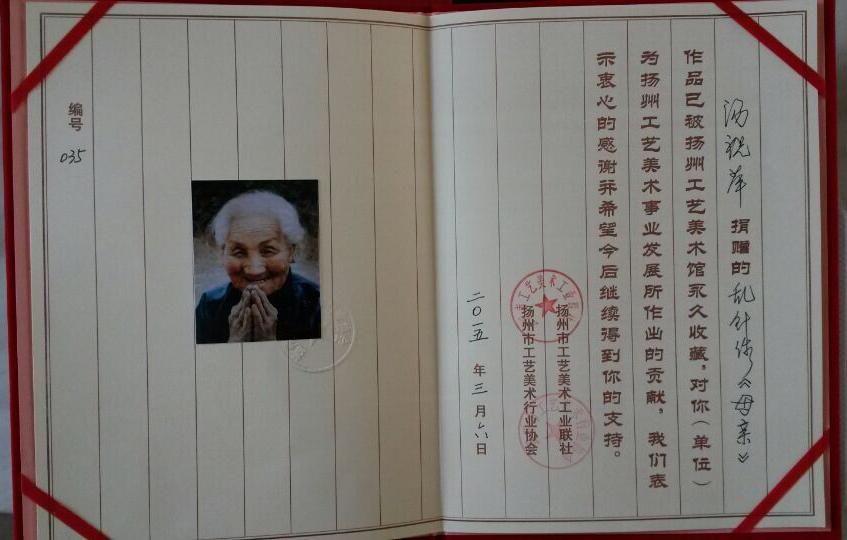 捐赠的乱针绣《母亲》
作品已被扬州工艺美术馆永久收藏，对你（单位）
为扬州工艺美术事业发展所作出的贡献，我们表
示衷心的感谢并希望今后继续得到你的支持。
扬州市工艺美术工业联社
扬州市工艺美术行业协会
二〇一五年三月六日
编号 035